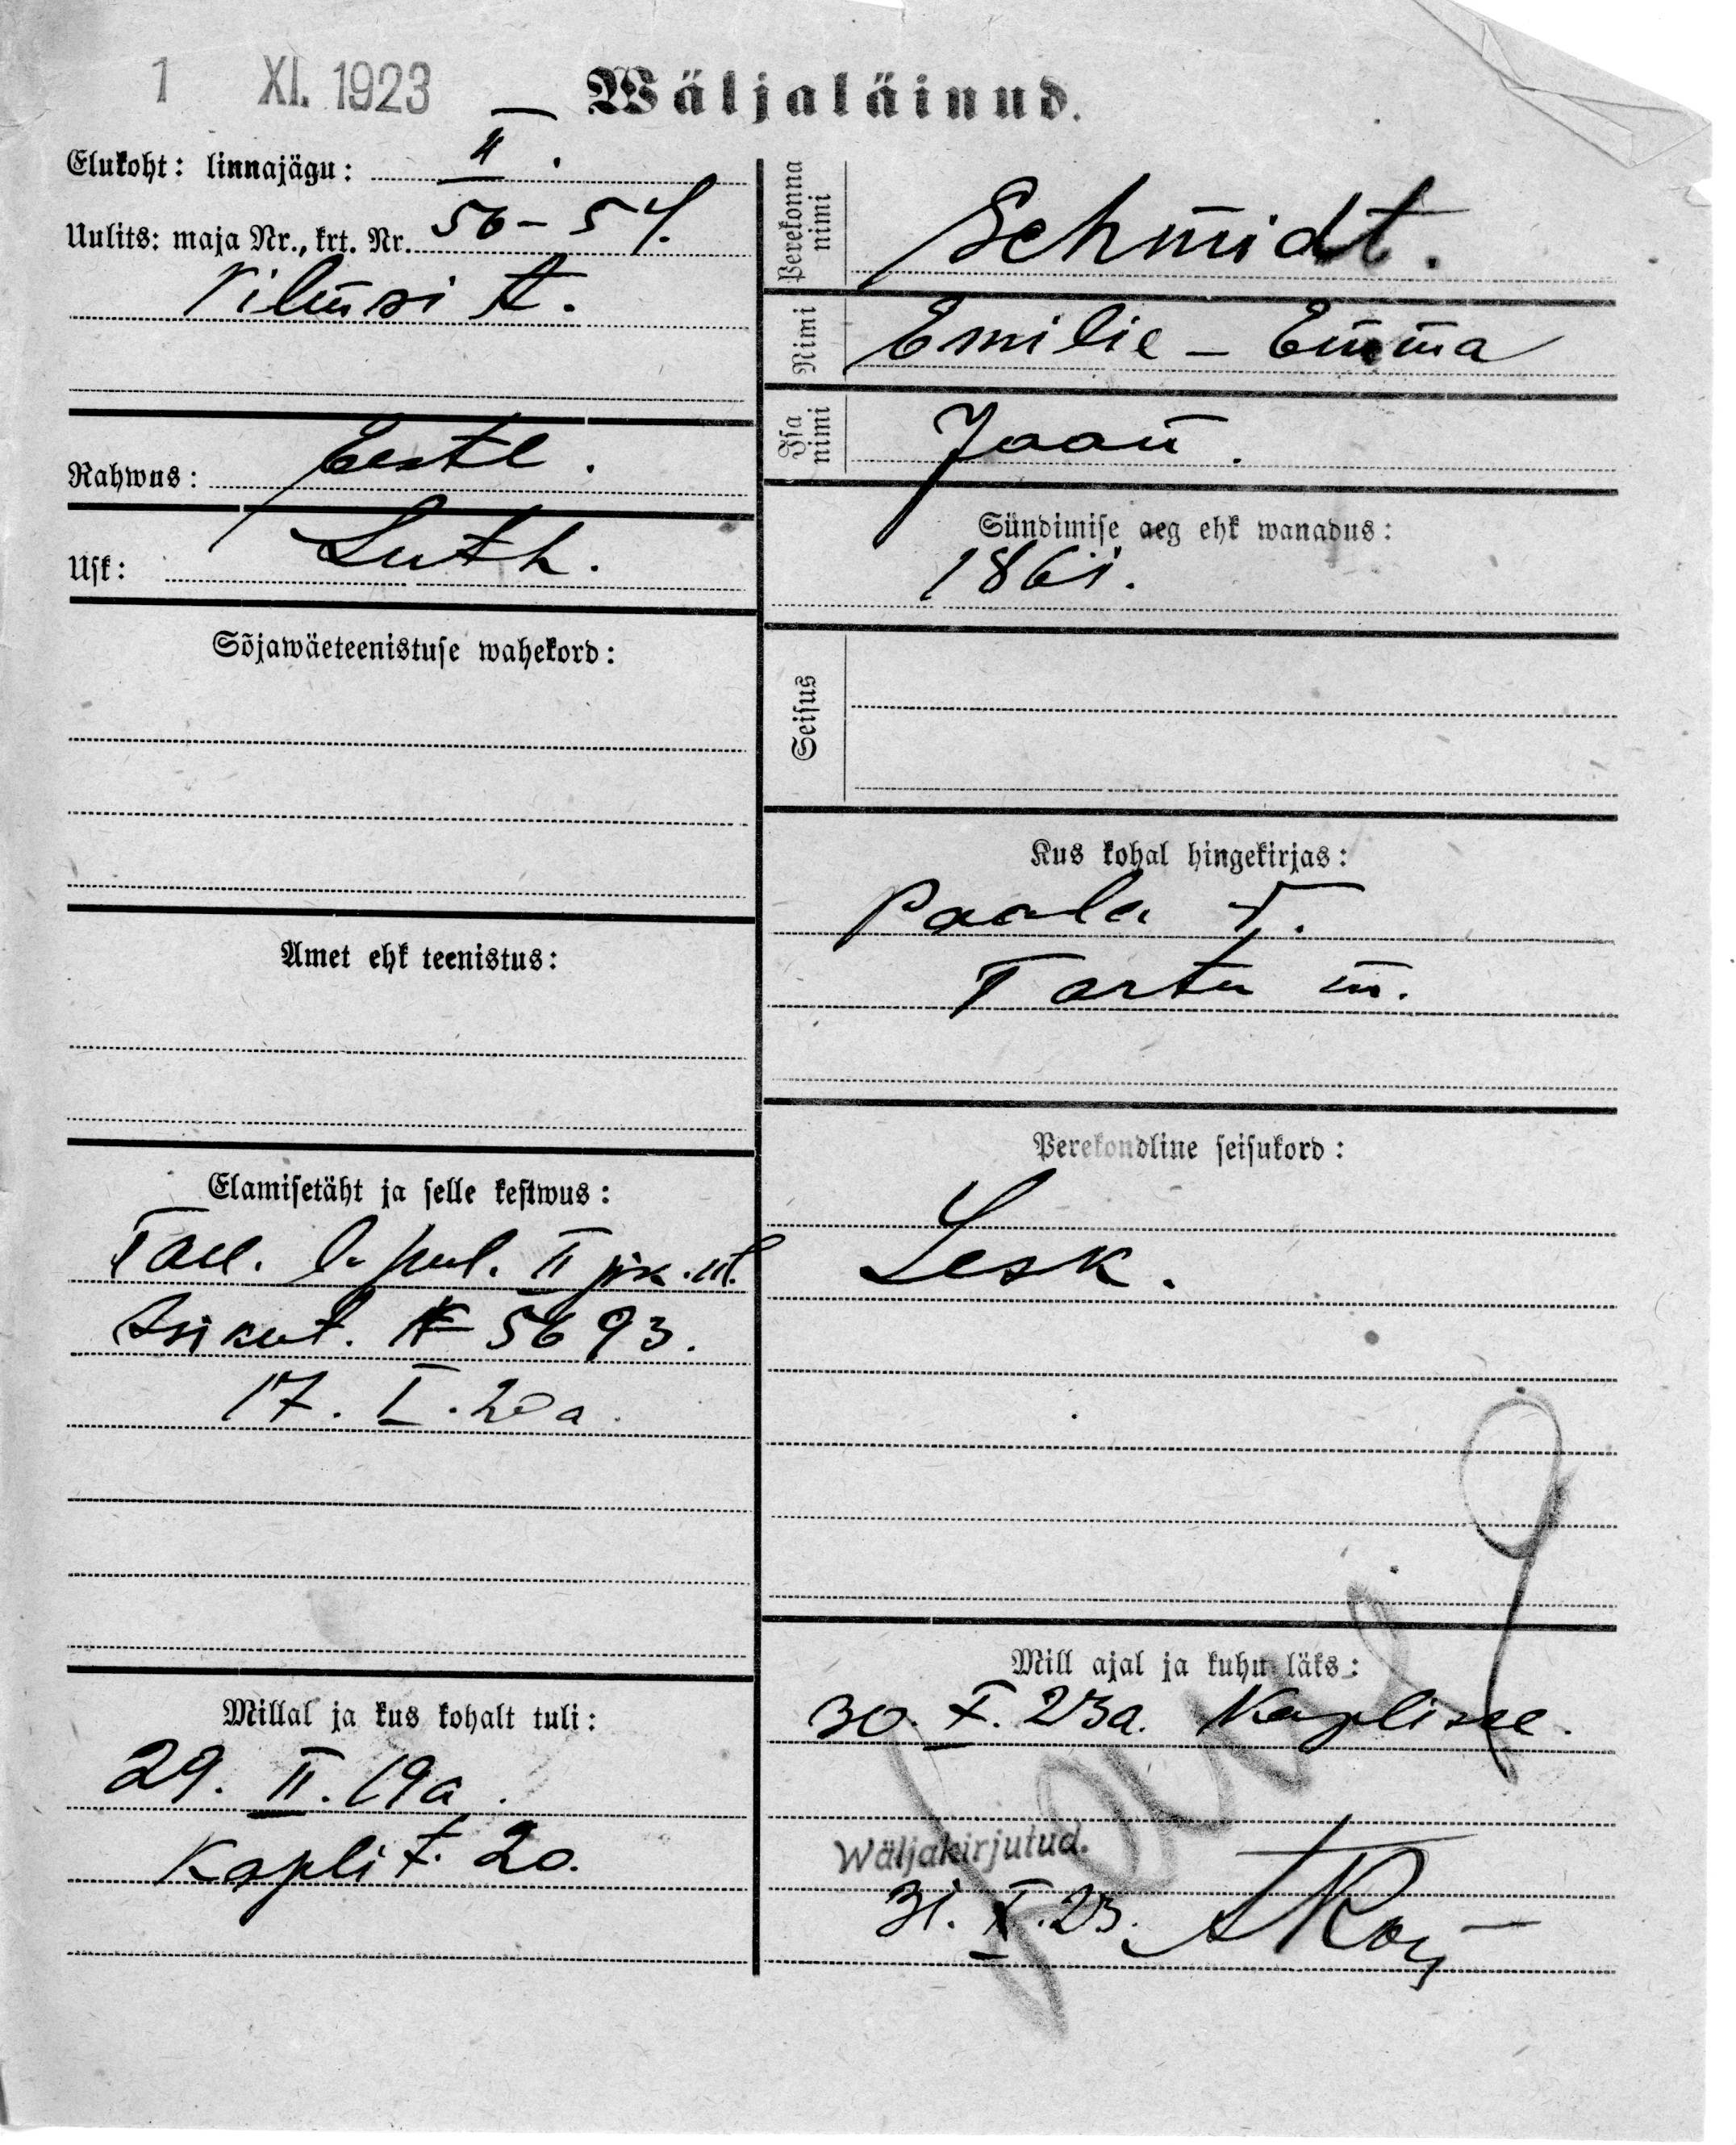 1 XI. 1923
Wäljaläinud.
Elukoht: linnajägu: II.
Uulits: maja Nr., krt. Nr. 56 - 54.
Vilmsi t.
Rahwus: Eestl.
Usk: Luth.
Sõjawäeteenistuse wahekord:
Amet ehk teenistus:
Elamisetäht ja selle kestwus:
Tall. l. pol. II jsk. ül.
Isikut. № 5693.
17. I. 20 a.
Millal ja kus kohalt tuli:
29. II. 19 a.
Kopli t. 20.
Perekonna nimi Schmidt.
Nimi Emilie - Emma
Isa nimi Jaan.
Sündimise aeg ehk wanadus:
1861.
Seisus
Kus kohal hingekirjas:
Tartu m.
Perekondline seisukord:
Lesk.
Mill ajal ja kuhu läks:
30. X. 23 a.
Wäljakirjutud.
31. X. 23.